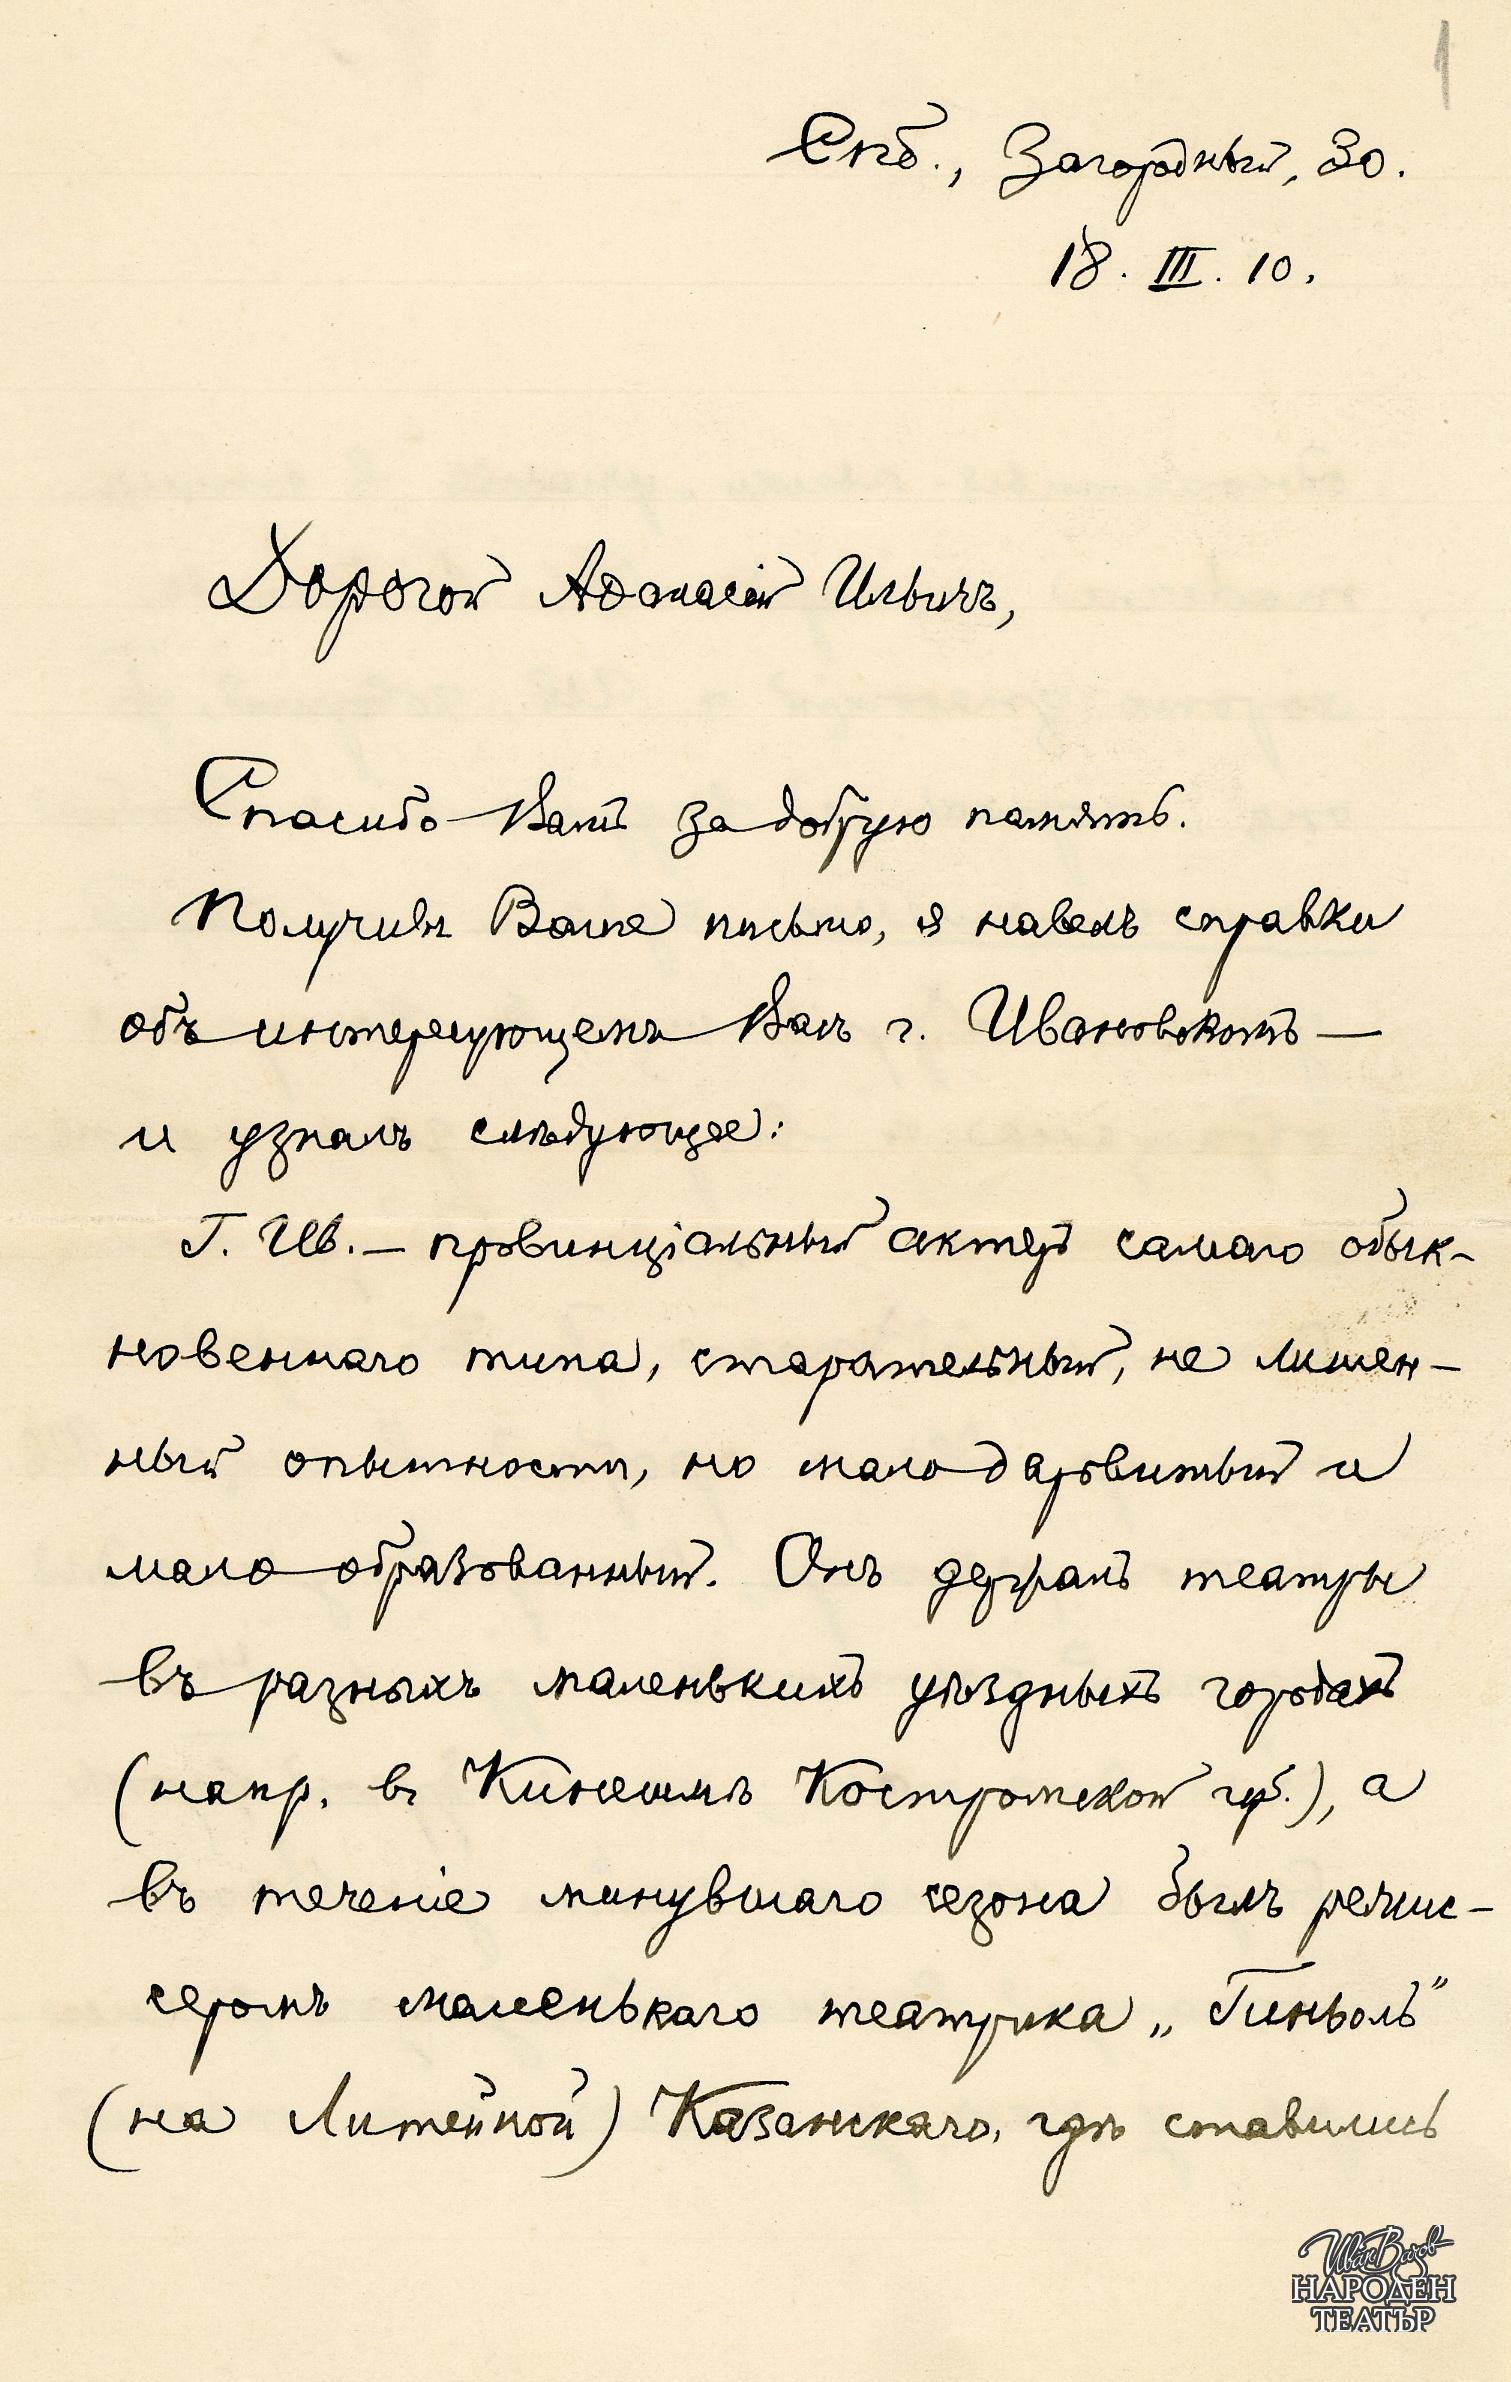 1
Спб., Загородный, 30.
18. III. 10.
Дорогой Афанасій Ильичъ,
Спасибо Вамъ за добрую память.
Получивъ Ваше письмо, я навелъ справки
объ интересующемъ Васъ г. Ивановскомъ —
и узналъ слѣдующее:
Г. Ив. — провинціальный актеръ самаго обык-
новеннаго типа, старательный, не лишен-
ный опытности, но мало даровитый и
мало образованный. Онъ держалъ театры
въ разныхъ маленькихъ уѣздныхъ городахъ
(напр. въ Кинешмѣ Костромской губ.), а
въ теченіе минувшаго сезона былъ режис-
серомъ маленькаго театрика „Гиньоль"
(на Литейной) Казанскаго, гдѣ ставились
Иван Вазов
НАРОДЕН
ТЕАТЪР